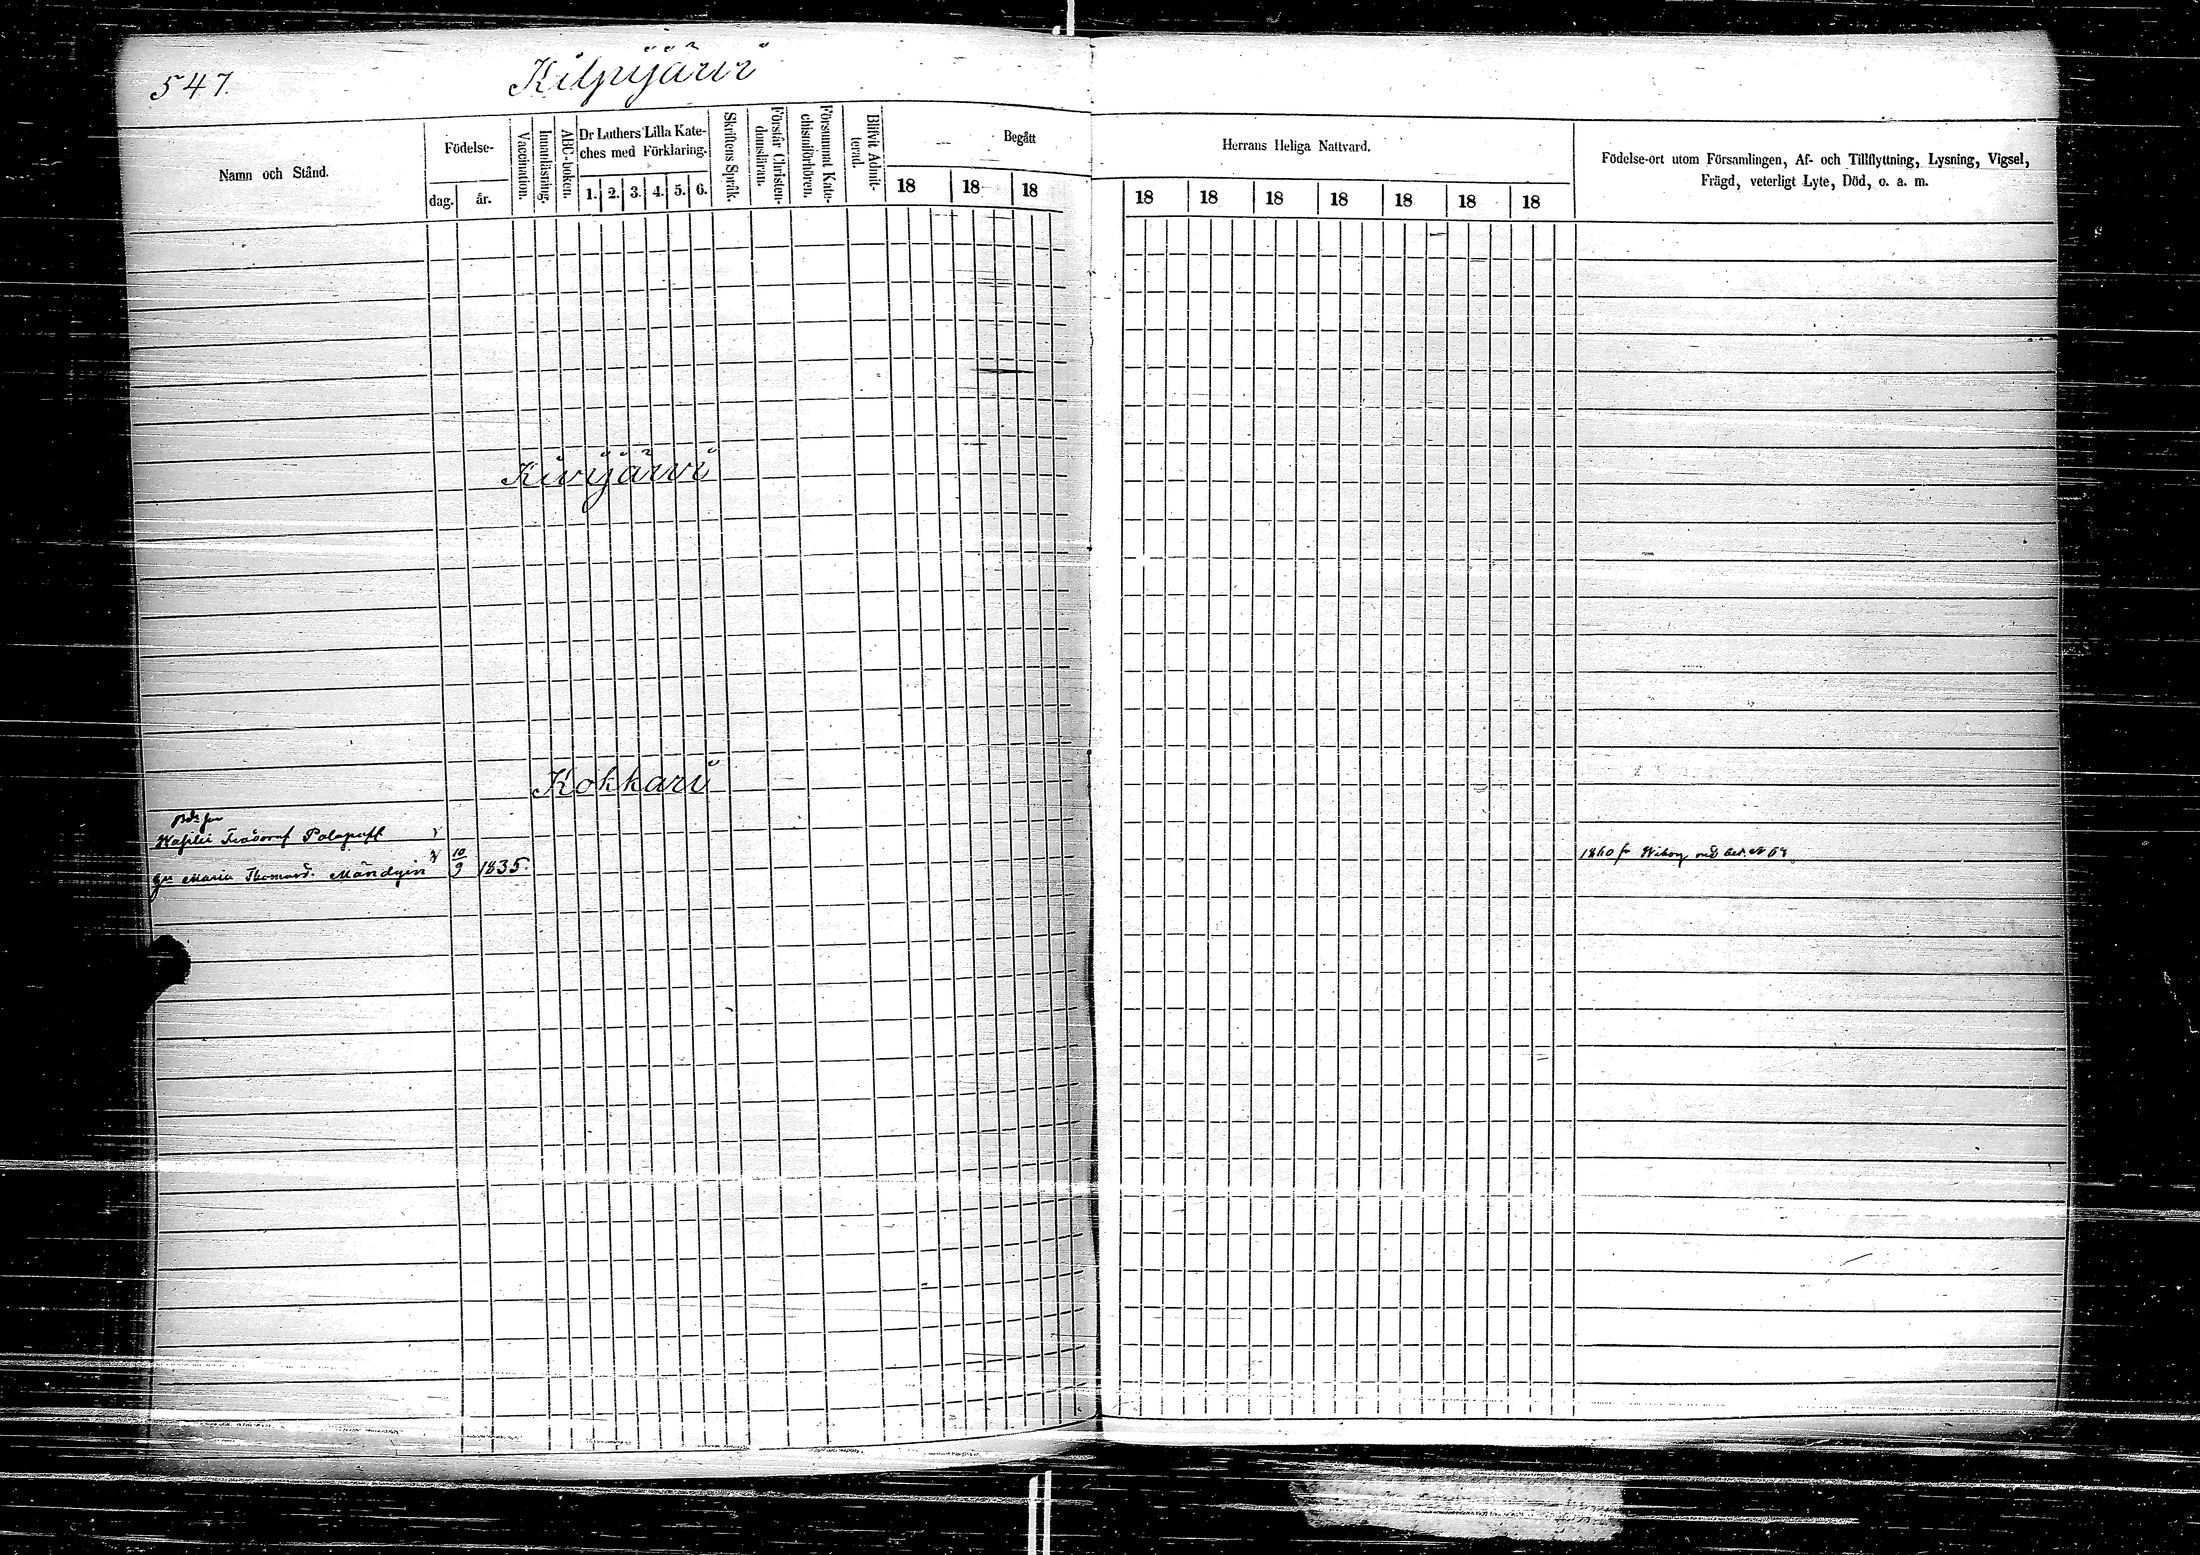 547.
Kilpijärvi
Namn och Stånd.
Födelse-
dag.
år.
Vaccination.
Innanläsning.
ABC-boken.
Dr Luthers Lilla Kate-
ches med Förklaring.
1. 2. 3. 4. 5. 6.
Skriftens Språk.
Förstår Christen-
domsläran.
Försummat Kate-
chismiförhören.
Blifvit Admit-
terad.
Begått
18 18 18
Herrans Heliga Nattvard.
18 18 18 18 18 18 18
Födelse-ort utom Församlingen, Af- och Tillflyttning, Lysning, Vigsel,
Frägd, veterligt Lyte, Död, o. a. m.
Kivijärvi
Kokkari
Maria Thomasd. Mändyin 10/9 1835.
1860 fr Wiborg med bet. № 68